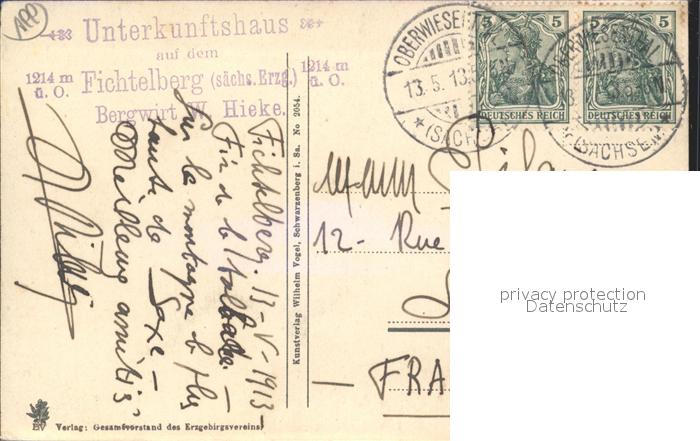 APP
Unterkunftshaus
auf dem
1214 m ü. O.
Fichtelberg (sächs. Erzg.)
1214 m ü. O.
Bergwirt W. Hieke.
OBERWIESENTHAL
13.5.13
* (SACHSEN)
5
5
DEUTSCHES REICH
DEUTSCHES REICH
(SACHSEN)
Fichtelberg. 13-V-1913-
Fin de
sur la montagne la plus
haute de Saxe-
Meilleures amitiés
Kunstverlag Wilhelm Vogel, Schwarzenberg i. Sa. No 2054.
12- Rue
FRA
privacy protection
Datenschutz
EV
Verlag: Gesamtvorstand des Erzgebirgsvereins.